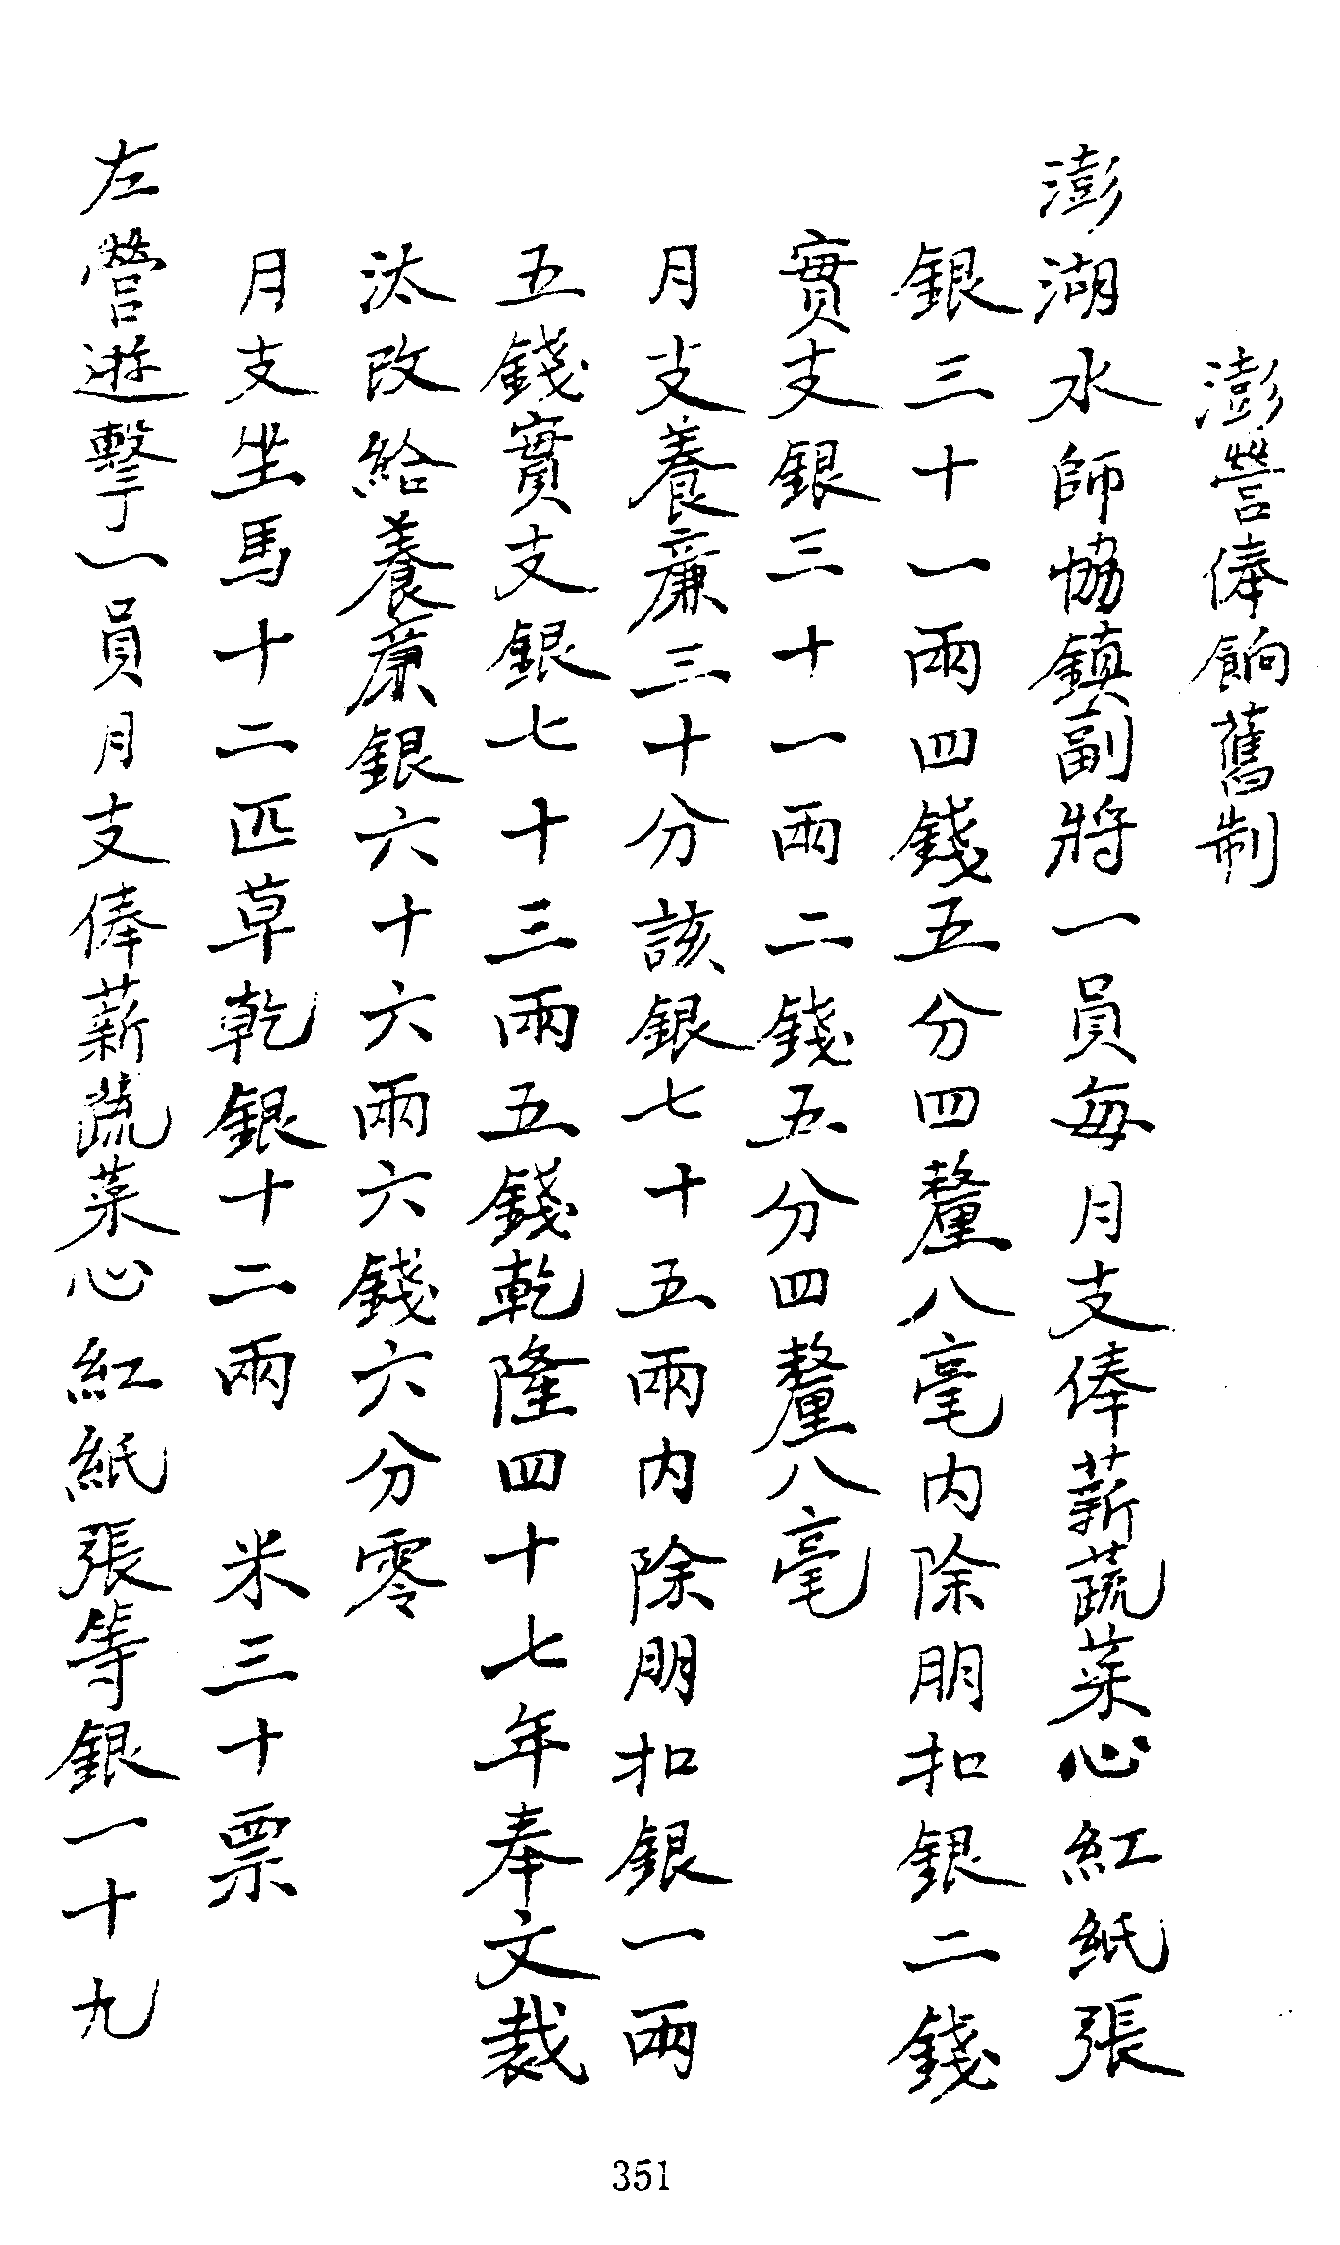 澎營俸餉舊制
澎湖水師協鎮副將一員每月支俸薪蔬菜心紅紙張
銀三十一兩四錢五分四釐八毫內除朋扣銀二錢
實支銀三十一兩二錢五分四釐八毫
月支養廉三十分該銀七十五兩內除朋扣銀一兩
五錢實支銀七十三兩五錢乾隆四十七年奉文裁
汰改給養廉銀六十六兩六錢六分零
月支坐馬十二匹草乾銀十二兩　米三十票
左營遊擊一員月支俸薪蔬菜心紅紙張等銀一十九
351